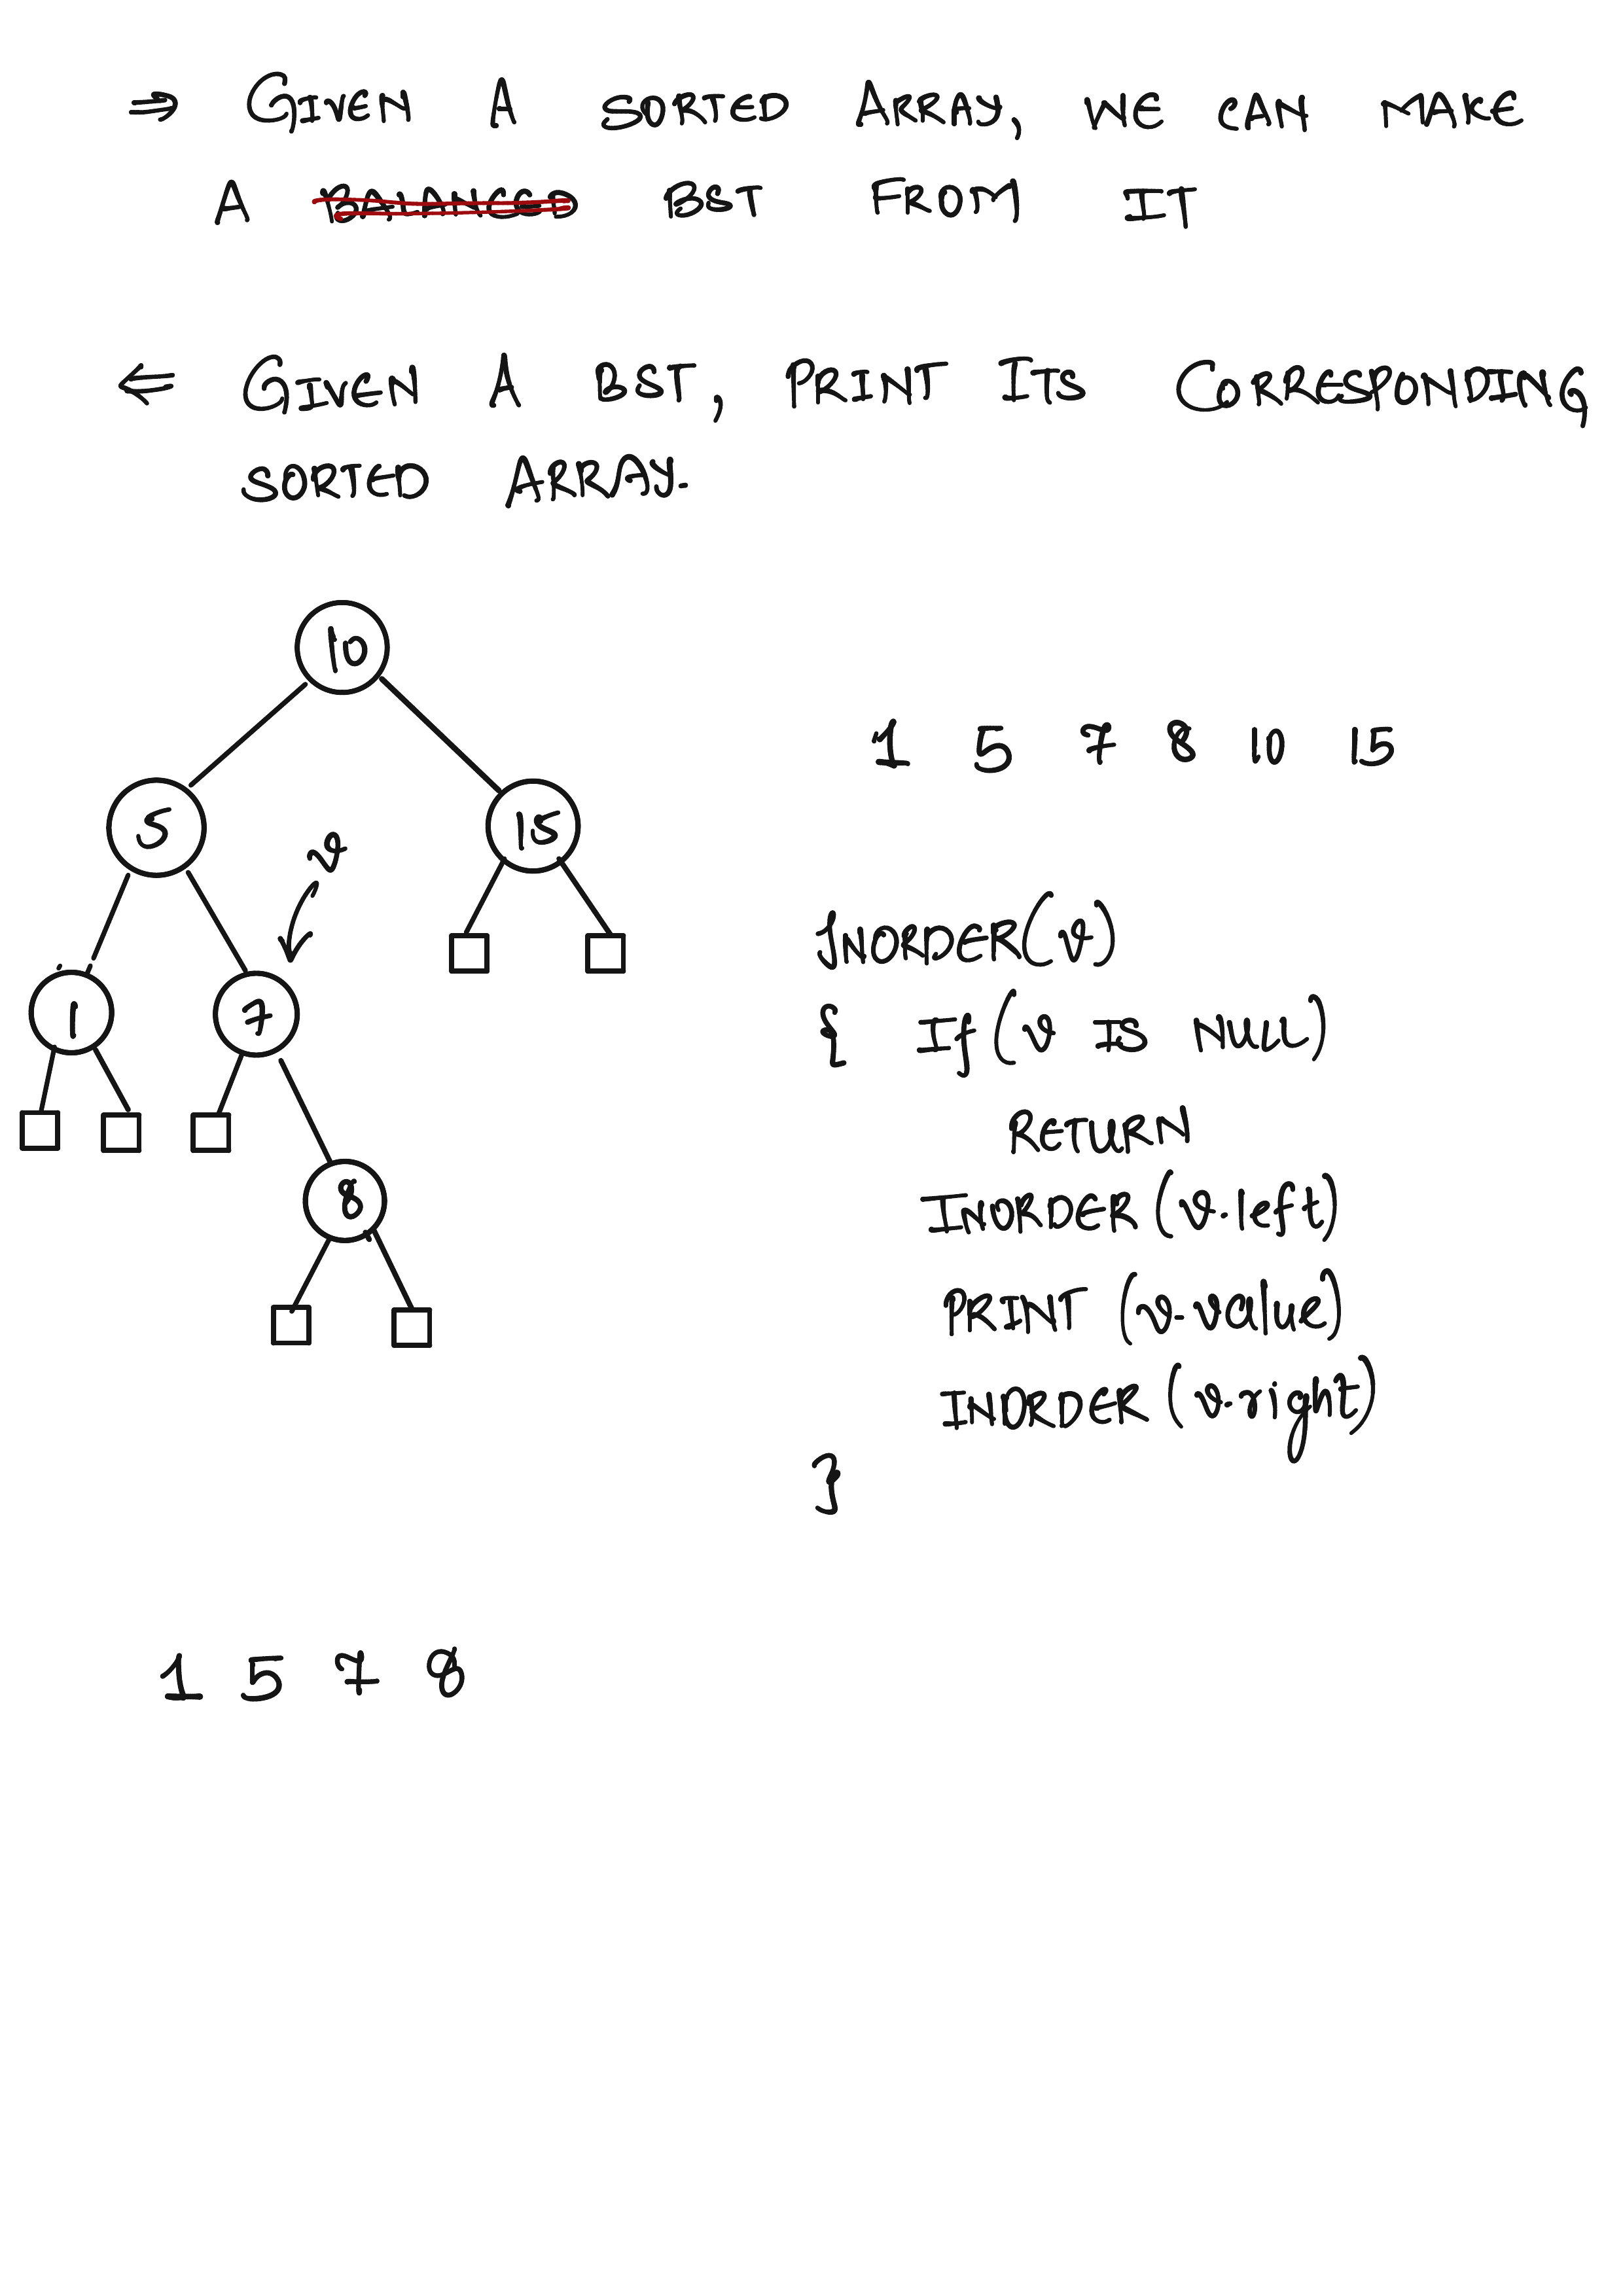 ⇒ GIVEN A SORTED ARRAY, WE CAN MAKE
A BALANCED BST FROM IT
⇐ GIVEN A BST, PRINT ITS CORRESPONDING
SORTED ARRAY.
10
1 5 7 8 10 15
5
15
v
INORDER(v)
1
7
{ If (v IS NULL)
RETURN
8
INORDER (v.left)
PRINT (v.value)
INORDER (v.right)
}
1 5 7 8